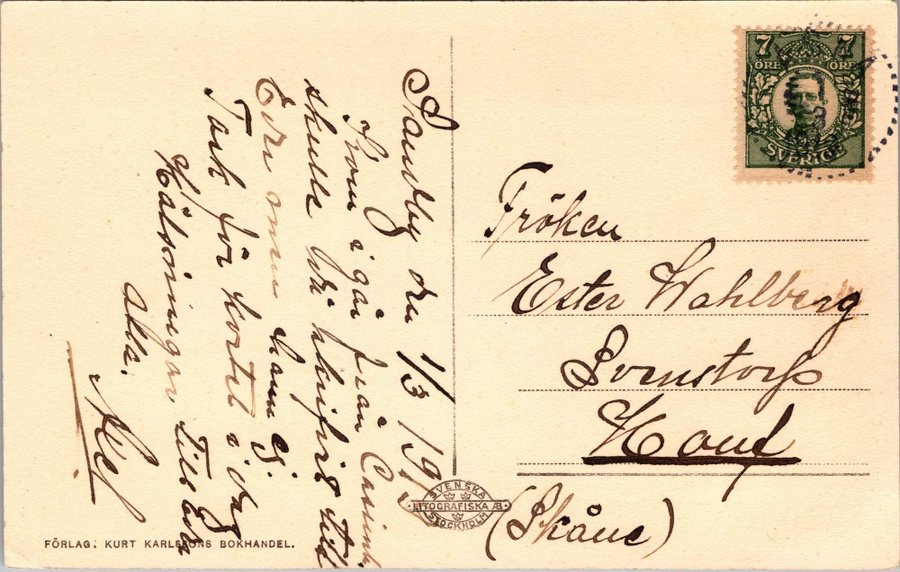 Sandby den 1/3 19
Kom i går från
skulle ha skrifvit till
Eder men hann ej
Tack för kortet i dag
Hälsningar till Eder
alla.
Axel
7 7
ÖRE ÖRE
SVERIGE
Fröken
Ester Wahlberg
Svenstorp
Hönf
(Skåne)
SVENSKA
LITOGRAFISKA AB
STOCKHOLM
FÖRLAG: KURT KARLSSONS BOKHANDEL.